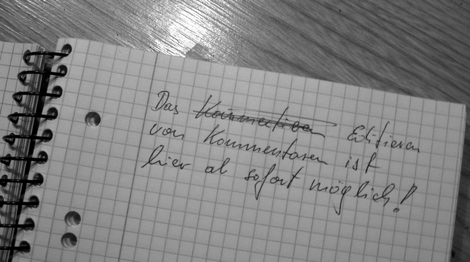 Das Kommentieren Editieren
von Kommentaren ist
hier ab sofort möglich!